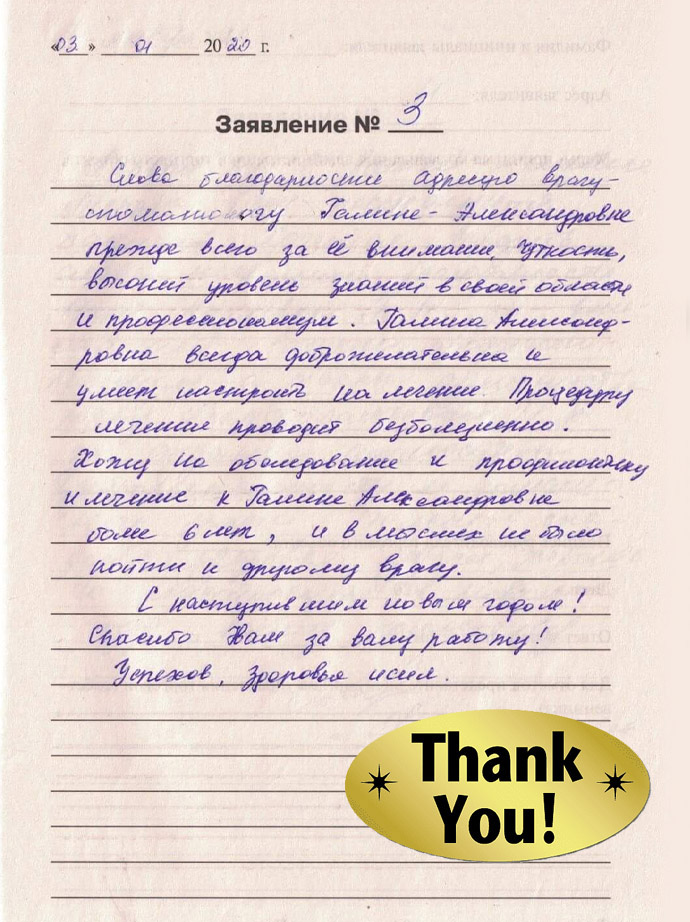 «03» 01 2020 г.
Заявление № 3
Слова благодарности адресую врачу-
стоматологу Галине-Александровне
прежде всего за её внимание, чуткость,
высокий уровень знаний в своей области
и профессионализм. Галина Александ-
ровна всегда доброжелательна и
умеет настроить на лечение. Процедуру
лечение проводит безболезненно.
Хожу на обследование и профилактику
и лечение к Галине Александровне
более 6 лет, и в мыслях не было
пойти к другому врачу.
С наступившим новым годом!
Спасибо Вам за вашу работу!
Успехов, здоровья и сил.
Thank
You!